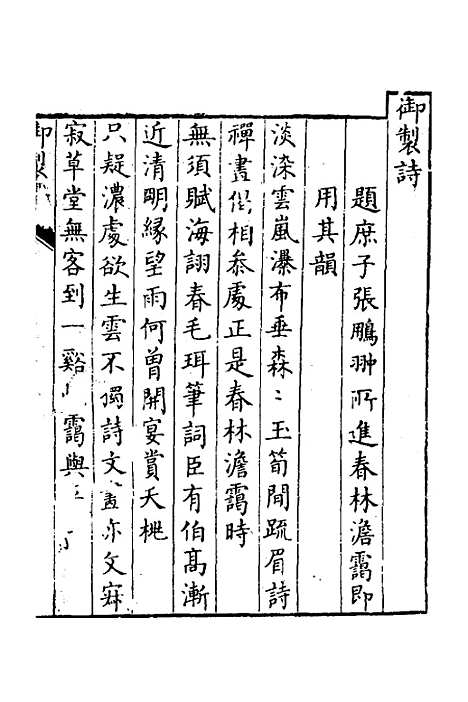 御製詩
題庶子張鵬翀所進春林澹靄即
用其韻
淡染雲嵐瀑布垂森〻玉筍間疏眉詩
禪畫侶相叅處正是春林澹靄時
無須賦海詡春毛珥筆詞臣有伯髙漸
近清明緣望雨何曾開宴賞夭桃
只疑濃處欲生雲不獨詩文畫亦文寂
寂草堂無客到一谿 靄與
御製